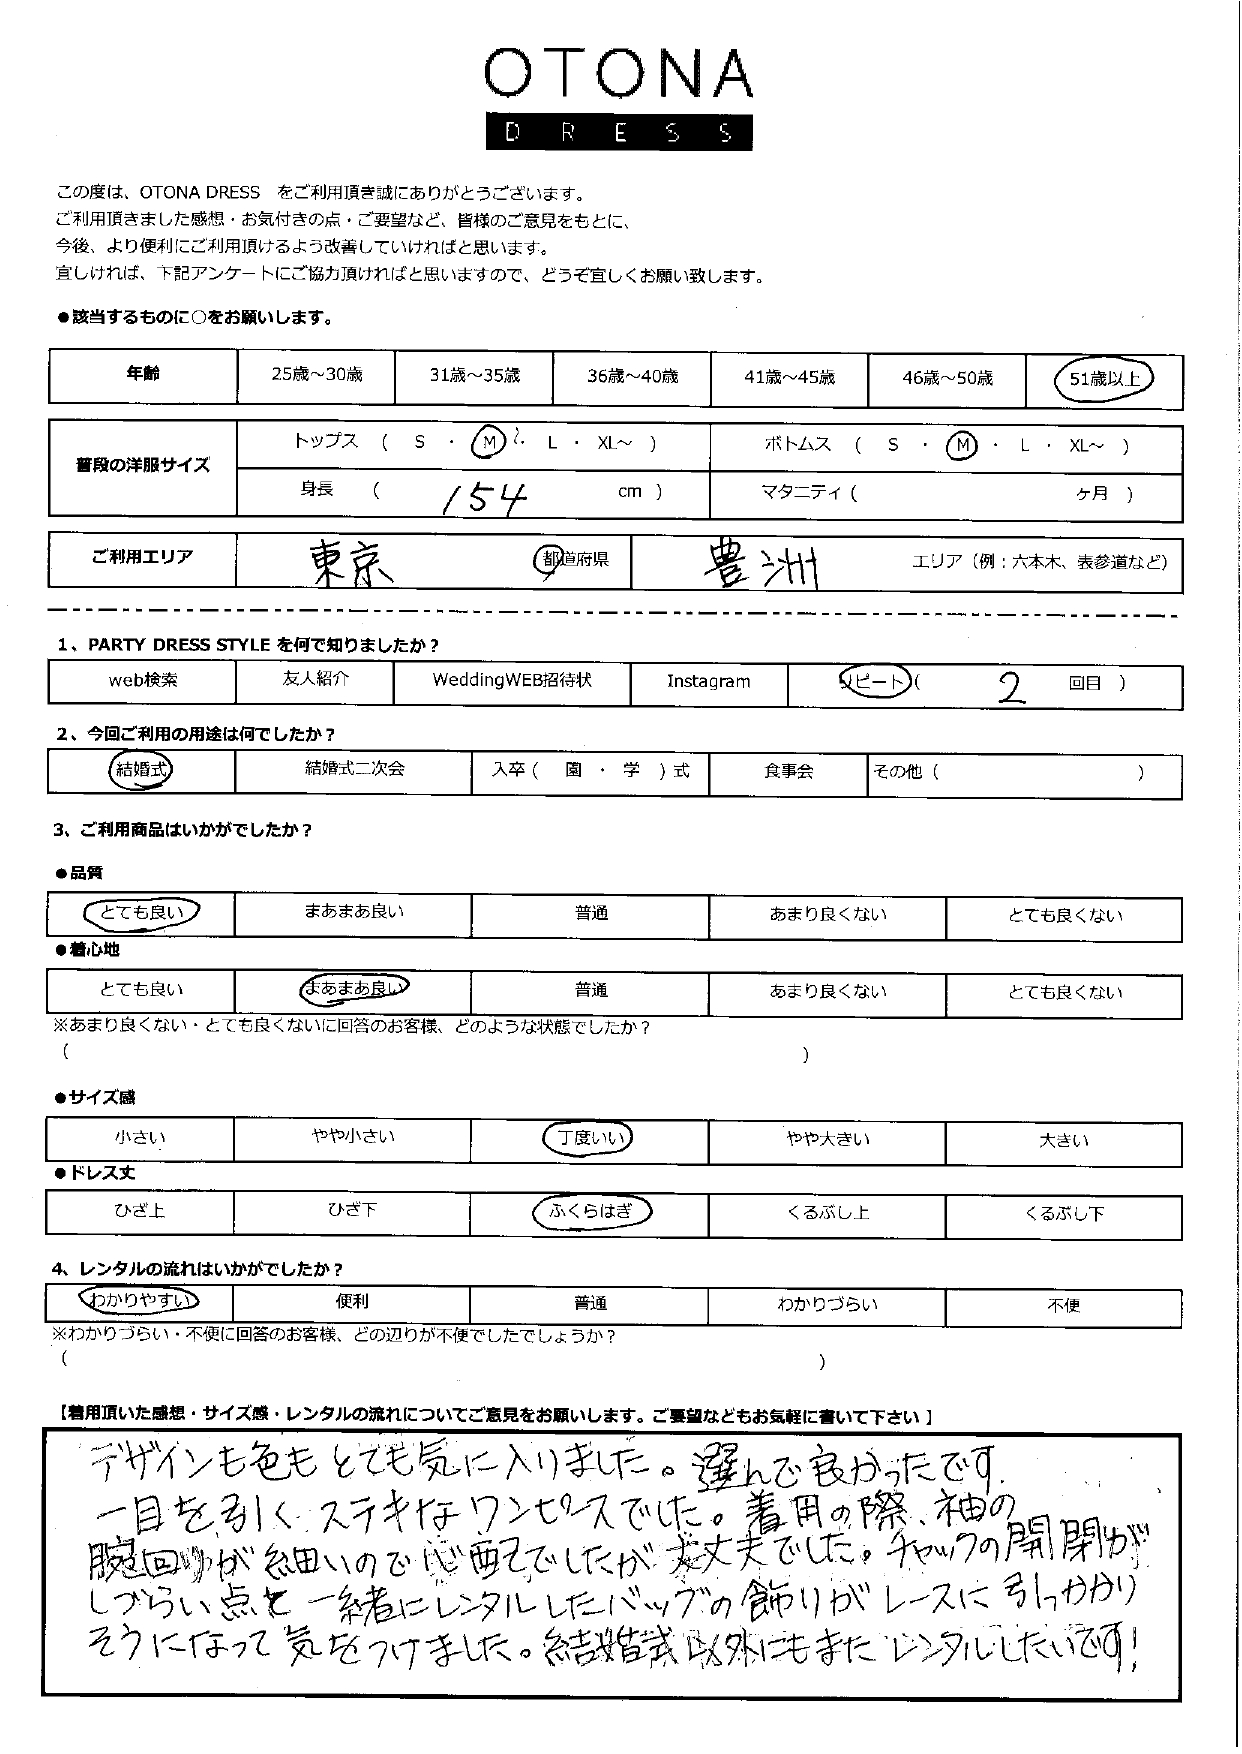 OTONA
DRESS
この度は、OTONA DRESS をご利用頂き誠にありがとうございます。
ご利用頂きました感想・お気付きの点・ご要望など、皆様のご意見をもとに、
今後、より便利にご利用頂けるよう改善していければと思います。
宜しければ、下記アンケートにご協力頂ければと思いますので、どうぞ宜しくお願い致します。
●該当するものに〇をお願いします。
年齢 25歳～30歳 31歳～35歳 36歳～40歳 41歳～45歳 46歳～50歳 51歳以上
普段の洋服サイズ トップス ( S ・ M ・ L ・ XL～ ) ボトムス ( S ・ M ・ L ・ XL～ )
身長 ( 154 cm ) マタニティ ( ケ月 )
ご利用エリア 東京 都道府県 豊洲 エリア（例：六本木、表参道など）
1、PARTY DRESS STYLE を何で知りましたか？
web検索 友人紹介 WeddingWEB招待状 Instagram リピート ( 2 回目 )
2、今回ご利用の用途は何でしたか？
結婚式 結婚式二次会 入卒 ( 園 ・ 学 ) 式 食事会 その他 ( )
3、ご利用商品はいかがでしたか？
●品質
とても良い まあまあ良い 普通 あまり良くない とても良くない
●着心地
とても良い まあまあ良い 普通 あまり良くない とても良くない
※あまり良くない・とても良くないに回答のお客様、どのような状態でしたか？
( )
●サイズ感
小さい やや小さい 丁度いい やや大きい 大きい
●ドレス丈
ひざ上 ひざ下 ふくらはぎ くるぶし上 くるぶし下
4、レンタルの流れはいかがでしたか？
わかりやすい 便利 普通 わかりづらい 不便
※わかりづらい・不便に回答のお客様、どの辺りが不便でしたでしょうか？
( )
【着用頂いた感想・サイズ感・レンタルの流れについてご意見をお願いします。ご要望などもお気軽に書いて下さい】
デザインも色もとても気に入りました。選んで良かったです.
一目を引くステキなワンピースでした。着用の際、袖の
腕回りが細いので心配でしたが大丈夫でした。チャックの開閉が
しづらい点と一緒にレンタルしたバッグの飾りがレースに引っかかり
そうになって気をつけました。結婚式以外にもまたレンタルしたいです!